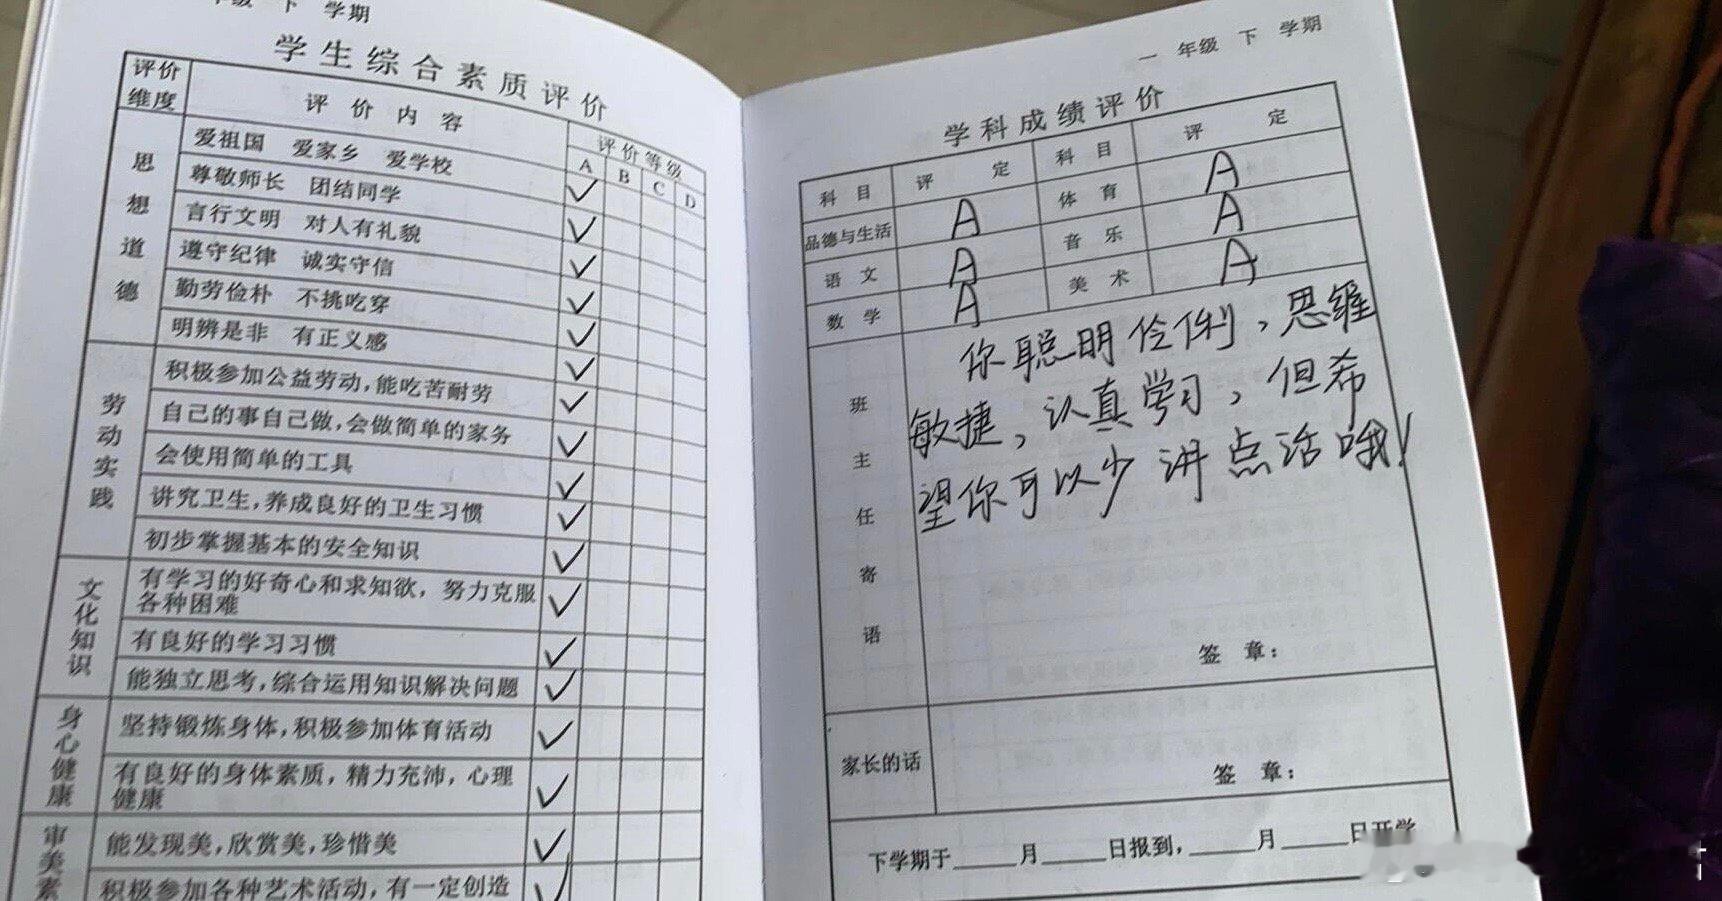 年级 下 学期
学生综合素质评价
评价维度 评价内容 评价等级
A B C D
思想道德
爱祖国 爱家乡 爱学校 ✓
尊敬师长 团结同学 ✓
言行文明 对人有礼貌 ✓
遵守纪律 诚实守信 ✓
勤劳俭朴 不挑吃穿 ✓
明辨是非 有正义感 ✓
劳动实践
积极参加公益劳动,能吃苦耐劳 ✓
自己的事自己做,会做简单的家务 ✓
会使用简单的工具 ✓
讲究卫生,养成良好的卫生习惯 ✓
初步掌握基本的安全知识 ✓
文化知识
有学习的好奇心和求知欲,努力克服
各种困难 ✓
有良好的学习习惯 ✓
能独立思考,综合运用知识解决问题 ✓
身心健康
坚持锻炼身体,积极参加体育活动 ✓
有良好的身体素质,精力充沛,心理
健康 ✓
审美素
能发现美,欣赏美,珍惜美 ✓
积极参加各种艺术活动,有一定创造 ✓
一 年级 下 学期
学科成绩评价
科目 评定 科目 评定
品德与生活 A 体育 A
语文 A 音乐 A
数学 A 美术 A
班主任寄语
你聪明伶俐,思维
敏捷,认真学习,但希
望你可以少讲点话哦!
签章:
家长的话
签章:
下学期于 月 日报到, 月 日开学